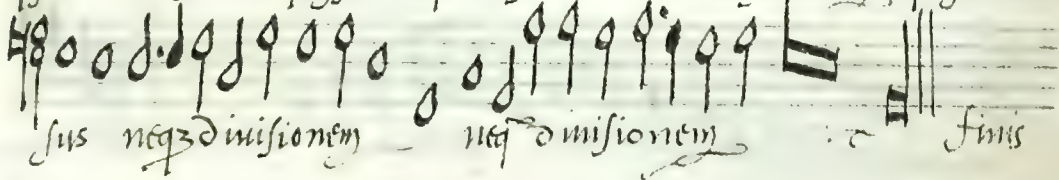 sus neqꝫ diuisionem neq̃ diuisionem finis